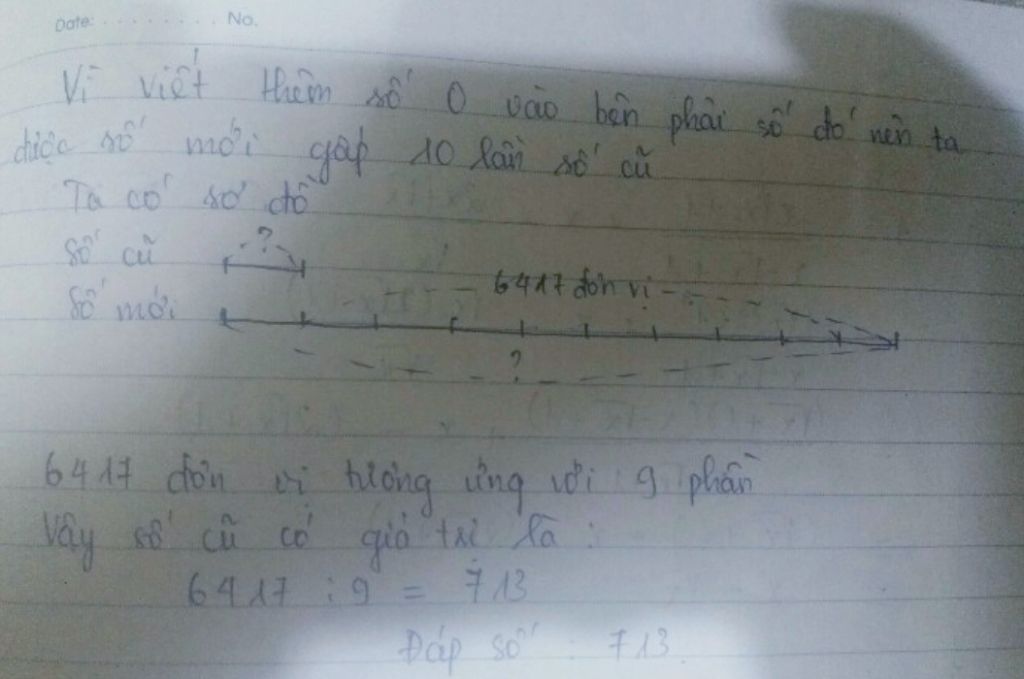 Date: . . . . . . . . . No.
Vì viết thêm số 0 vào bên phải số đó nên ta
được số mới gấp 10 lần số cũ
Ta có sơ đồ
?
Số cũ
6417 đơn vị
Số mới
?
6417 đơn vị tương ứng với 9 phần
Vậy số cũ có giá trị là :
6417 : 9 = 713
Đáp số : 713.